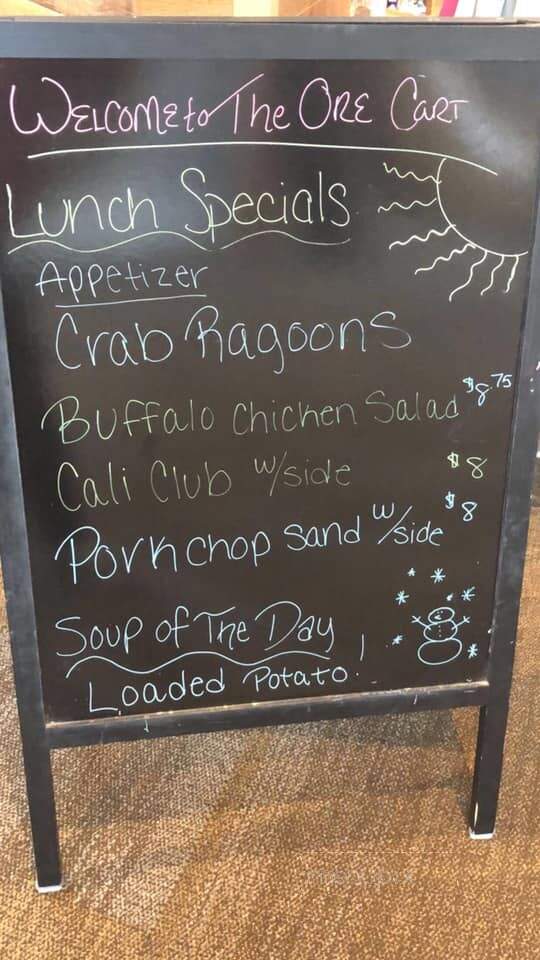 Welcome to The Ore Cart
Lunch Specials
Appetizer
Crab Ragoons
Buffalo Chicken Salad $8.75
Cali Club w/side $8
Porkchop Sand w/side $8
Soup of The Day
Loaded Potato